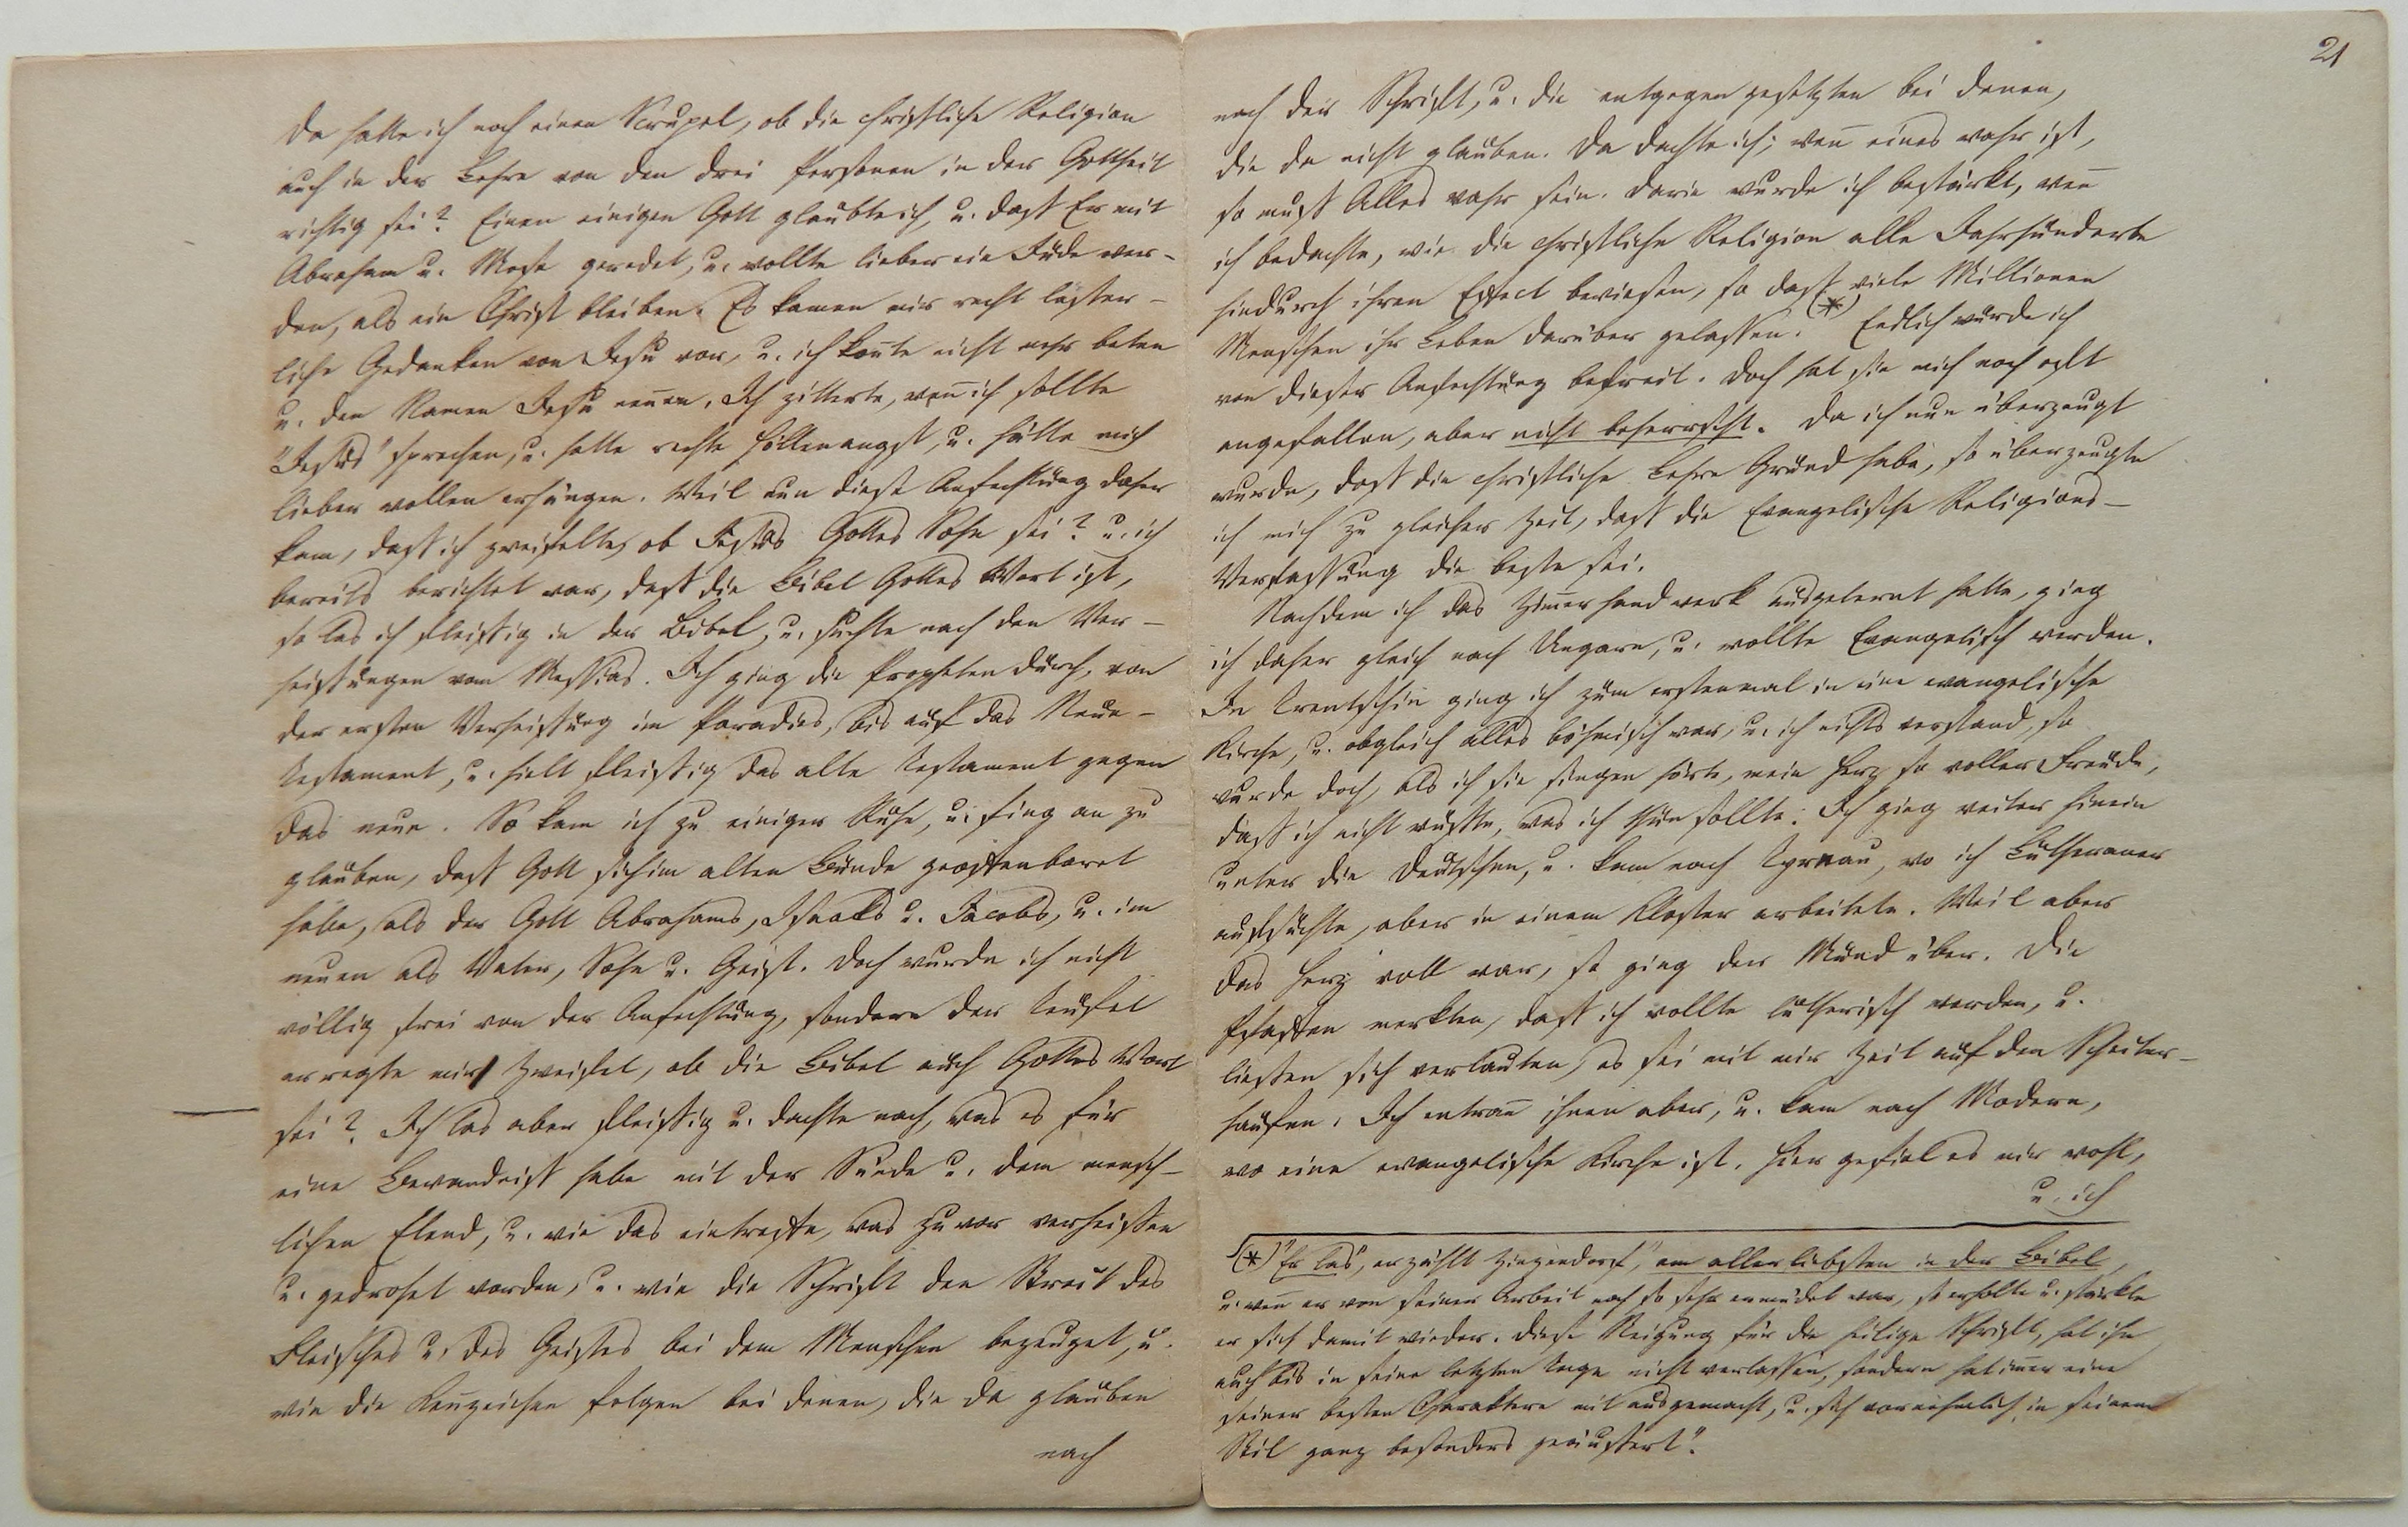 Da hatte ich noch einen Scrupel, ob die christliche Religion
auch in der Lehre von den drei Personen in der Gottheit
richtig sei? Einen einigen Gott glaubte ich, u. dass Er mit
Abraham u. Mose geredet, u. wollte lieber ein Jude wer-
den, als ein Christ bleiben. Es kamen mir recht läster-
liche Gedanken von Jesu vor, u. ich konnte nicht mehr beten
u. den Namen Jesu nennen. Ich zitterte, wenn ich sollte
"Jesus" sprechen, u. hatte rechte Höllenangst, u. hätte mich
lieber wollen erhängen. Weil nun diese Anfechtung daher
kam, dass ich zweifelte, ob Jesus Gottes Sohn sei? u. ich
bereits berichtet war, dass die Bibel Gottes Wort ist,
so las ich fleissig in der Bibel, u. suchte nach den Ver-
heissungen vom Messias. Ich ging die Propheten durch, von
der ersten Verheissung im Paradies, bis auf das Neue-
Testament, u. hielt fleissig das alte Testament gegen
das neue. So kam ich zu einiger Ruhe, u. fing an zu
glauben, dass Gott sich im alten Bunde geoffenbaret
habe, als der Gott Abrahams, Isaaks u. Jacobs, u. im
neuen als Vater, Sohn u. Geist. Doch wurde ich nicht
völlig frei von der Anfechtung, sondern der Teufel
erregte mir Zweifel, ob die Bibel auch Gottes Wort
sei? Ich las aber fleissig u. dachte nach, was es für
eine Bewandniss habe mit der Sünde u. dem mensch-
lichen Elend, u. wie das eintreffe, was zuvor verheissen
u. gedrohet worden, u. wie die Schrift den Streit des
Fleisches u. des Geistes bei dem Menschen bezeuget, u.
wie die Kennzeichen folgen bei denen, die da glauben
nach
21
nach der Schrift, u. die entgegen gesetzten bei denen,
die da nicht glauben. Da dachte ich; wenn eines wahr ist,
so muss Alles wahr sein. Darin wurde ich bestärkt, wenn
ich bedachte, wie die christliche Religion alle Jahrhunderte
hindurch ihren Effect bewiesen, so dass viele Millionen
Menschen ihr Leben darüber gelassen. (*) Endlich wurde ich
von dieser Anfechtung befreit. Doch hat sie mich noch oft
angefallen, aber nicht beherrscht. Da ich nun überzeugt
wurde, dass die christliche Lehre Grund habe, so überzeugte
ich mich zu gleicher Zeit, dass die Evangelische Religions-
Verfassung die beste sei.
Nachdem ich das Zimmerhandwerk ausgelernt hatte, ging
ich daher gleich nach Ungarn, u. wollte Evangelisch werden.
In Trentschin ging ich zum erstenmal in eine evangelische
Kirche, u. obgleich alles böhmisch war, u. ich nichts verstand, so
wurde doch, als ich sie singen hörte, mein Herz so voller Freude,
dass ich nicht wusste, was ich thun sollte. Ich ging weiter hinein
unter die Deutschen, u. kam nach Tyrnau, wo ich Lutheraner
aufsuchte, aber in einem Kloster arbeitete. Weil aber
das Herz voll war, so ging der Mund über. Die
Pfaffen merkten, dass ich wollte lutherisch werden, u.
liessen sich verlauten, es sei mit mir Zeit auf den Scheiter-
haufen. Ich entrann ihnen aber, u. kam nach Modern,
wo eine evangelische Kirche ist. Hier gefiel es mir wohl,
u. ich
(*) "Er las", erzählt Zinzendorf, "am allerliebsten in der Bibel,
u. wenn er von seiner Arbeit noch so sehr ermüdet war, so erholte u. stärkte
er sich damit wieder. Diese Neigung für die heilige Schrift, hat ihn
auch bis in seine letzten Tage nicht verlassen, sondern hat immer eine
seiner besten Charaktere mit ausgemacht, u. sich vornehmlich in seinem
Stil ganz besonders geäussert".